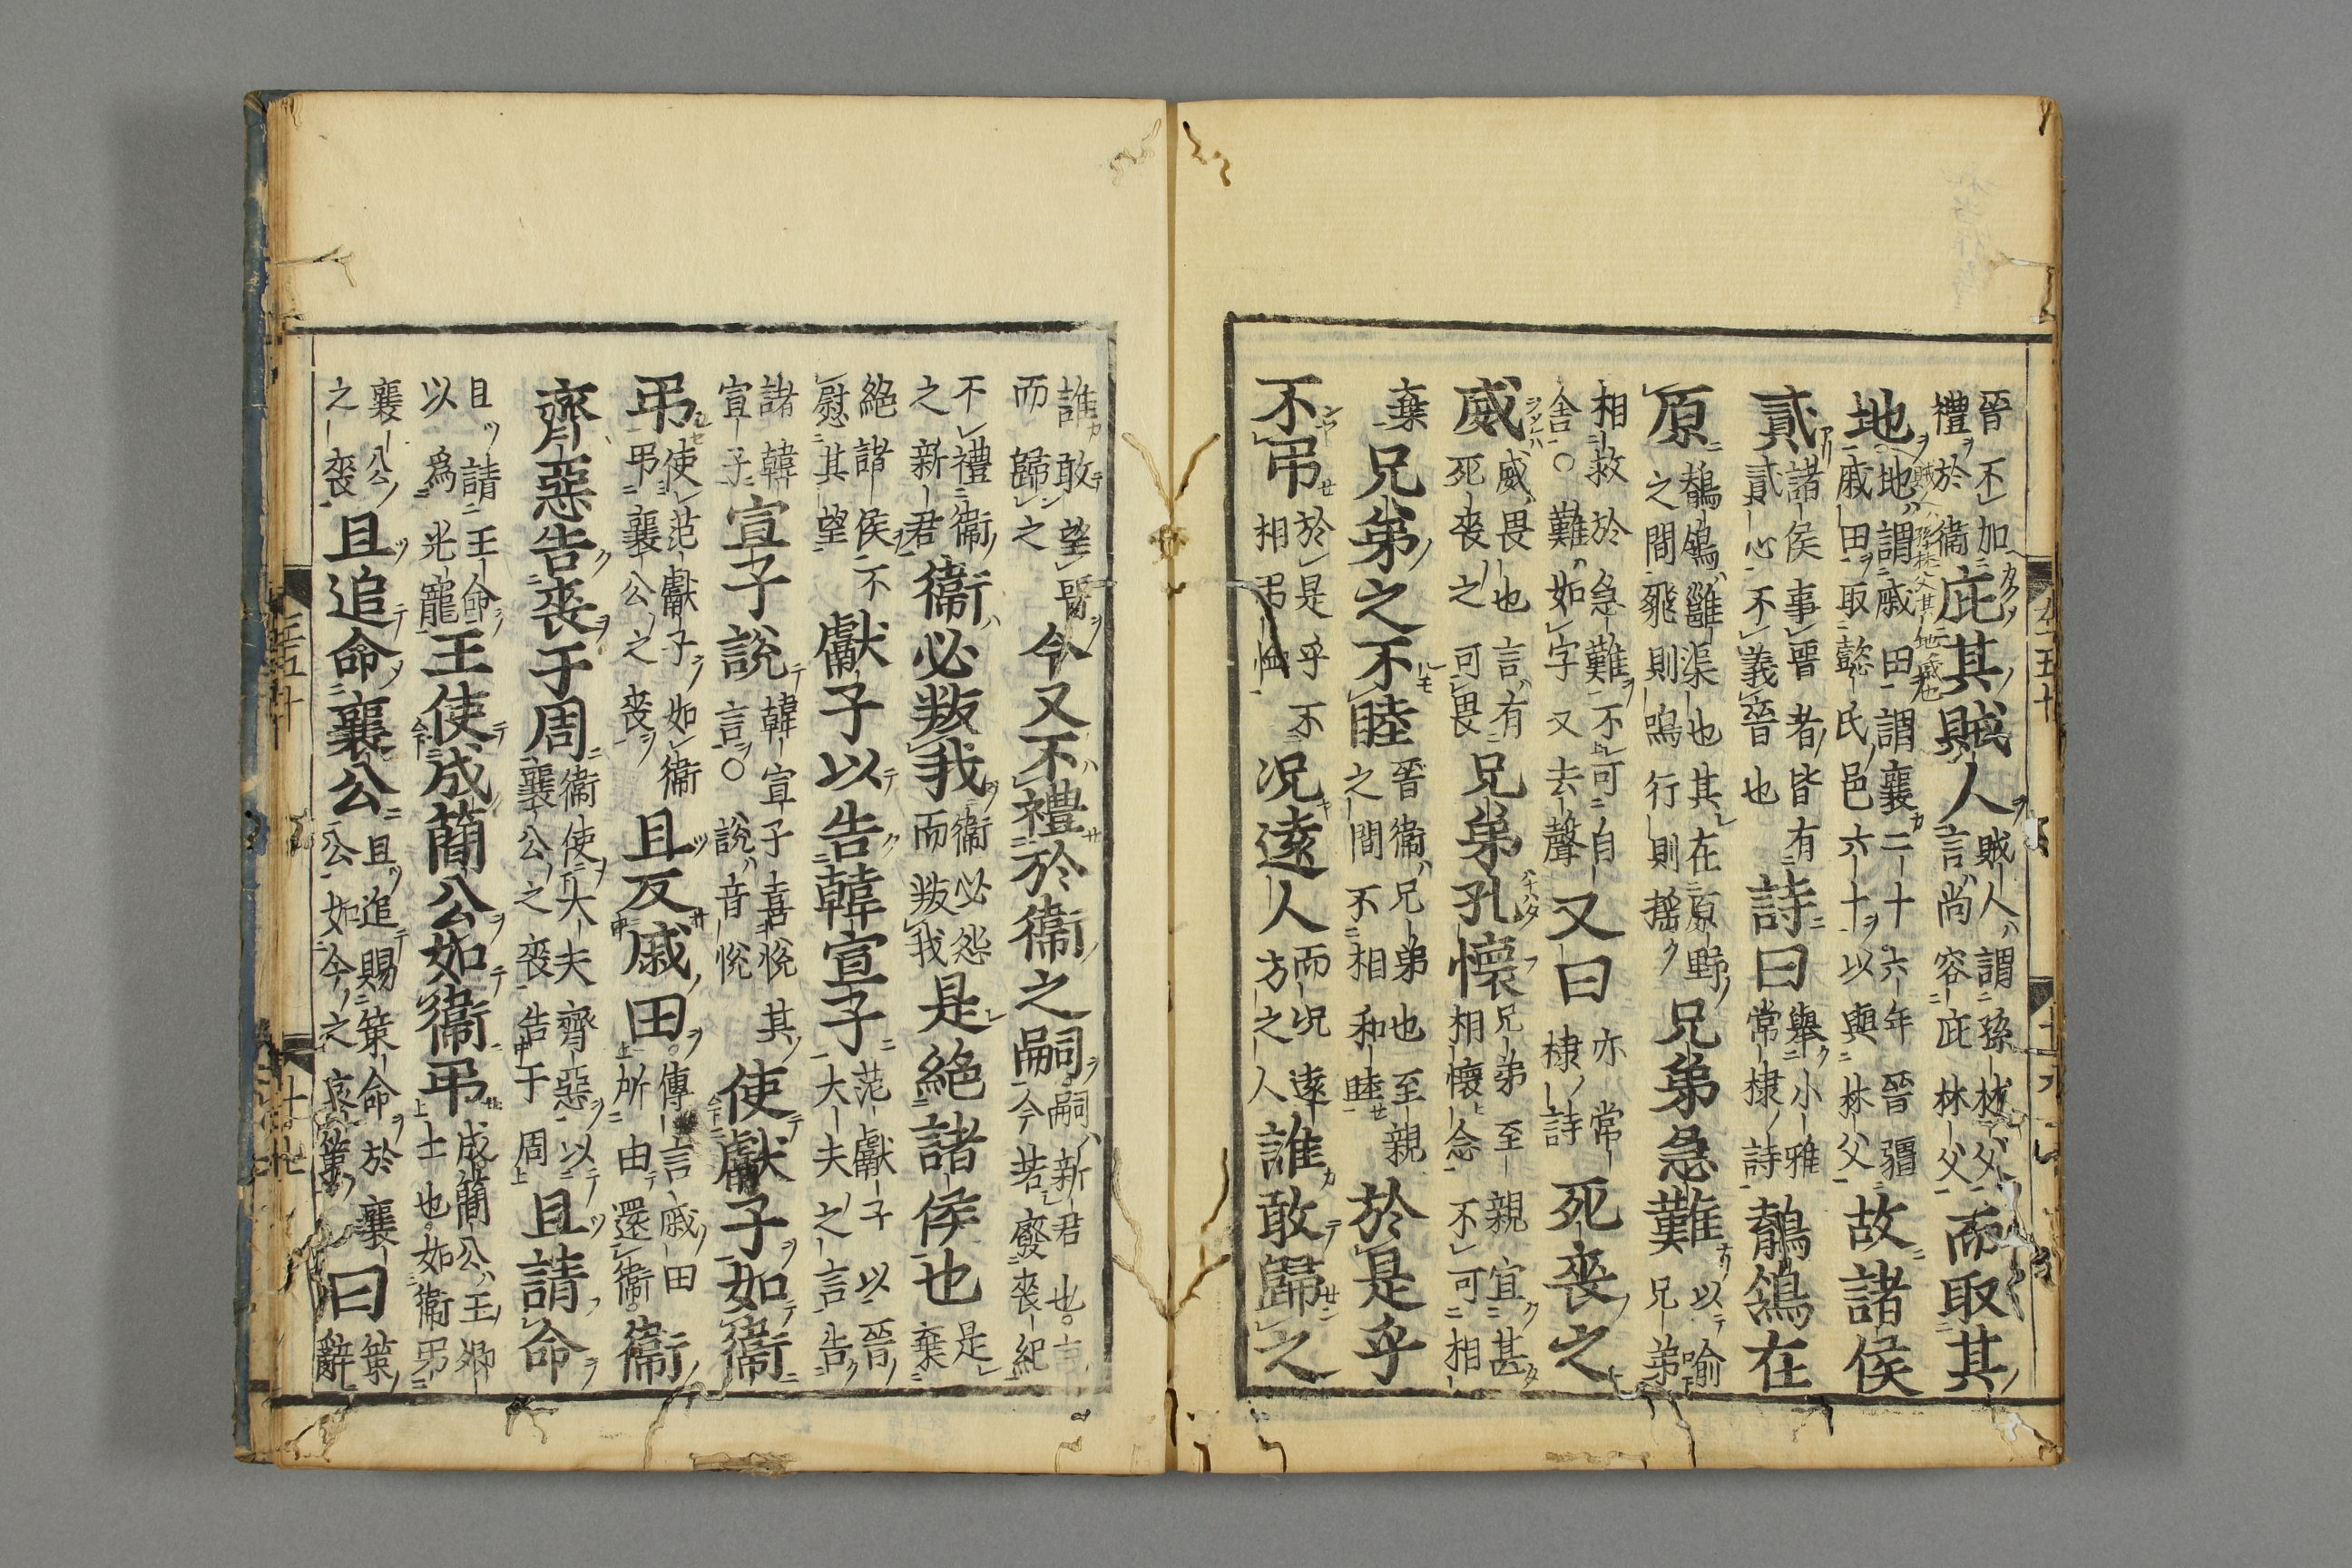 晉不加禮於衞庇其賊人賊人謂孫林父言尚容庇林父而取其
地地謂戚田謂襄二十六年晉彊戚田取懿氏邑六十以與林父故諸侯
貳諸侯事晉者皆有貳心不義晉也詩曰舉小雅常棣詩鶺鴒在
原鶺鴒雝渠也其在原野之間飛則鳴行則搖兄弟急難以喻兄弟
相救於急難不可自舍○難如字又去聲又曰亦常棣詩死喪之
威威畏也言有死喪之可畏兄弟孔懷兄弟至親宜甚相懷念不可相
棄兄弟之不睦晉衞兄弟也至親之間不相和睦於是乎
不弔於是乎不相弔恤况遠人而况遠方之人誰敢歸之
誰敢望晉而歸之今又不禮於衞之嗣嗣新君也言今若廢喪紀
不禮衞之新君衞必叛我衞必怨而叛我是絕諸侯也是棄
絕諸侯不慰其望獻子以告韓宣子范獻子以晉大夫之言告
諸韓宣子宣子說韓宣子喜悅其言○說音悅使獻子如衞
弔使范獻子如衞弔襄公之喪且反戚田傳言戚田所由還衞衞
齊惡告喪于周衞使大夫齊惡以襄公之喪告于周且請命
且請王命以爲光寵王使成簡公如衞弔成簡公王卿士也如衞弔
襄公之喪且追命襄公且追賜策命於襄公如今之哀策曰策辭